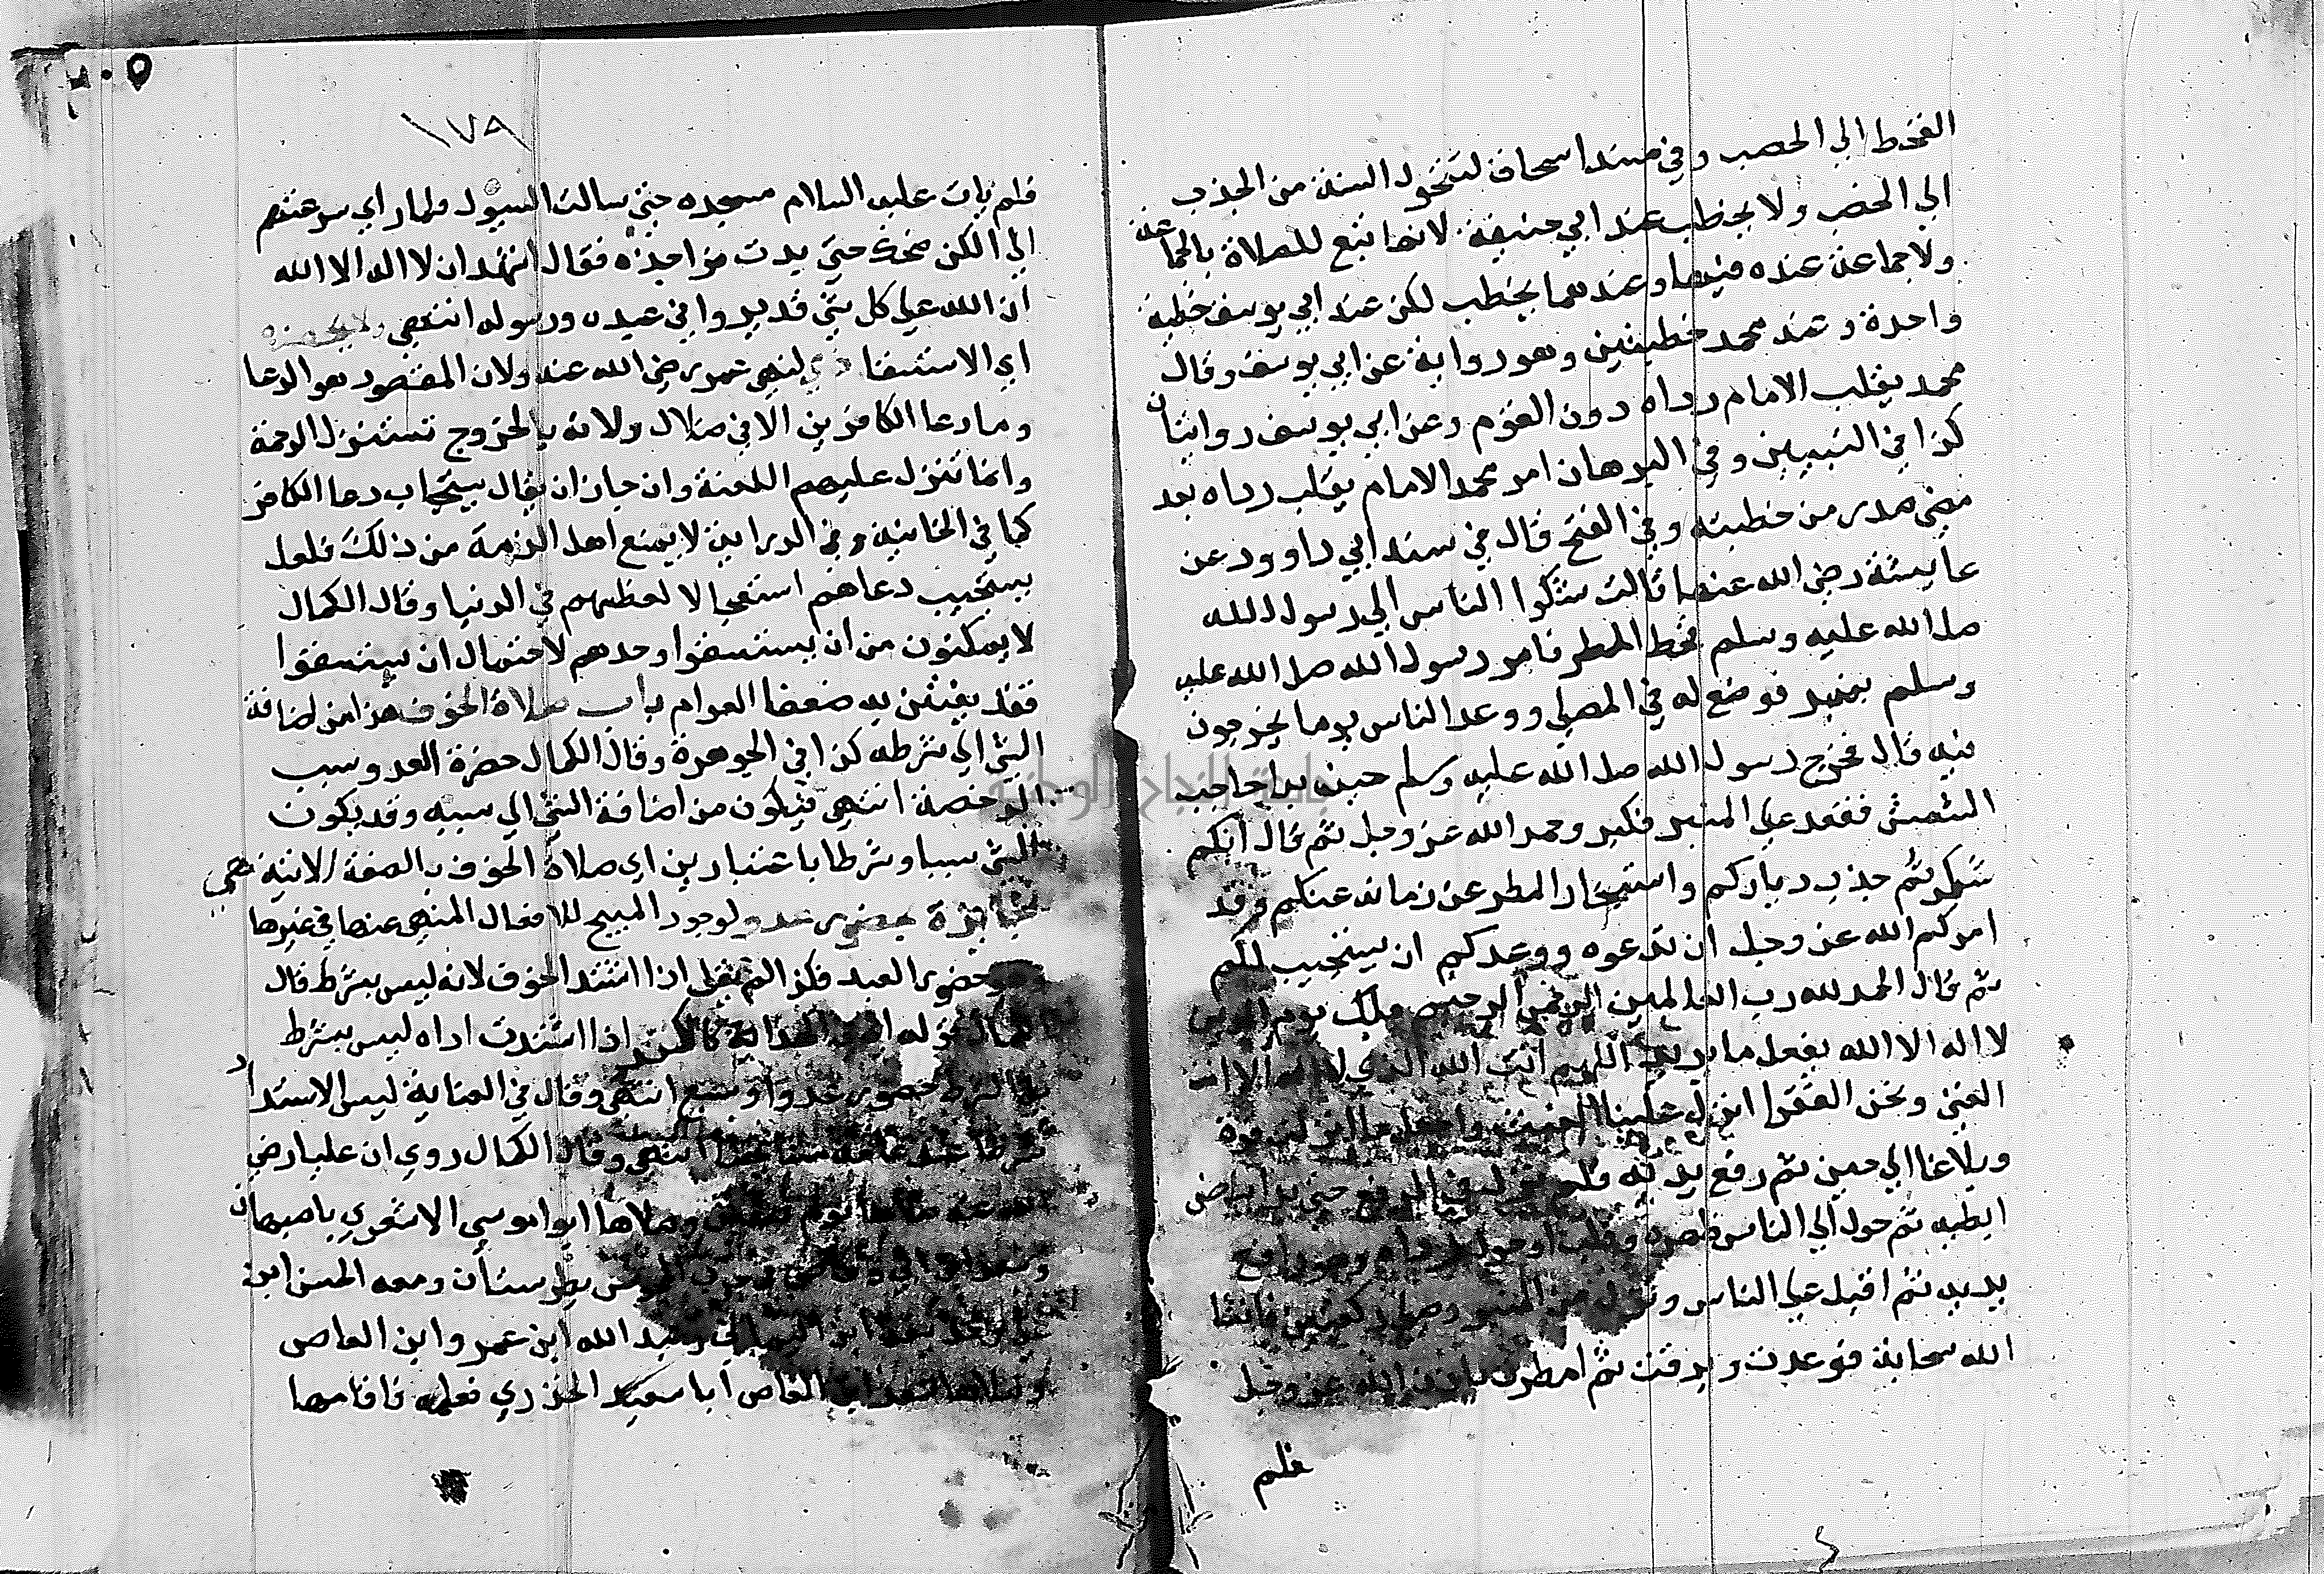 القحط الي الخصب وفي مسند اسحاق لتتحول السنة من الجدب
الي الخصب ولا يخطب عند ابي حنيفة لانها تبع للصلاة بالجماعة
ولا جماعة عنده فيها وعندهما يخطب لكن عند ابي يوسف خطبة
واحدة وعند محمد خطبتين وهو رواية عن ابي يوسف وقال
محمد يقلب الامام رداه دون القوم وعن ابي يوسف روايتان
كذا في التبيين وفي البرهان امر محمد الامام يقلب رداه بعد
مضي صدر من خطبته وفي الفتح قال في سند ابي داوود عن
عايشة رضي الله عنها قالت شكوا الناس الي رسول الله
صلا الله عليه وسلم قحط المطر فامر رسول الله صلا الله عليه
وسلم بمنبر فوضع له في المصلي ووعد الناس يوما يخرجون
فيه قال فخرج رسول الله صلا الله عليه وسلم حين بدا حاجب
الشمس فقعد علي المنبر فكبر وحمد الله عز وجل ثم قال انكم
شكوتم جدب دياركم واستيخار المطر عن زمانه عنكم وقد
امركم الله عز وجل ان تدعوه ووعدكم ان يستجيب لكم
ثم قال الحمد لله رب العالمين الرحمن الرحيم ملك يوم الدين
لا اله الا الله يفعل ما يريد اللهم انت الله الذي لا اله الا انت
الغني ونحن الفقرا انزل علينا الغيث واجعل ما انزلت قوة
وبلاغا الي حين ثم رفع يديه فلم يزل في الرفع حتي بدا بياض
ابطيه ثم حول الي الناس ظهره وقلب او حول رداه وهو رافع
يديه ثم اقبل علي الناس ونزل من المنبر وصلي ركعتين فانشا
الله سحابة فرعدت وبرقت ثم امطرت باذن الله عز وجل
فلم
١٧٩
فلم يات عليه السلام مسجده حتي سالت السيول فلما راي سرعتهم
الي الكن ضحك حتي بدت نواجذه فقال اشهد ان لا اله الا الله
ان الله علي كل شي قدير واني عبده ورسوله انتهي ولا يحضره
اي الاستسقا ذي لنهي عمر رضي الله عنه ولان المقصود هو الدعا
وما دعا الكافرين الا في ضلال ولانه بالخروج تستنزل الرحمة
وانما تنزل عليهم اللعنة وان جاز ان يقال يستجاب دعا الكافر
كما في الخانية وفي الدراية لا يمنع اهل الذمة من ذلك فلعل
يستجيب دعاهم استعجالا لحظهم في الدنيا وقال الكمال
لا يمكنون من ان يستسقوا وحدهم لاحتمال ان يستسقوا
فقد يفتتن به ضعفا العوام باب صلاة الخوف هذا من اضافة
الشي الي شرطه كذا في الجوهرة وقال الكمال حضرة العدو سبب
الرخصة انتهي فيكون من اضافة الشي الي سببه وقد يكون
الشي سببا وشرطا باعتبارين اي صلاة الخوف بالصفة الاتية هي
جايزة بحضور عدو لوجود المبيح للافعال المنهي عنها في غيرها
وهو حضور العدو فلذا لم يقل اذا اشتد الخوف لانه ليس بشرط قال
الكمال قوله اذا اشتدت اداه ليس بشرط
بل الشرط حضور عدو او سبع انتهي وقال في العناية ليس الاشتداد
شرطا عند عامة مشايخنا انتهي وقال الكمال روي ان عليا رضي
الله عنه صلاها يوم صفين وصلاها ابوا موسي الاشعري باصبهان
وسعد ابن ابي وقاص في حرب المجوس بطبرستان ومعه الحسن ابن
علي وحذيفة ابن اليماني وعبد الله ابن عمر وابن العاص
وسالها سعد ابن العاص ابا سعيد الخدري فعلمه فاقامها